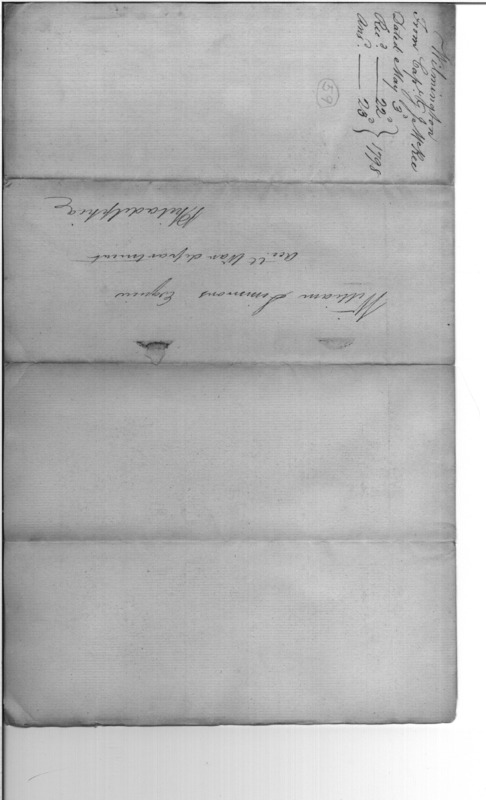 Wilmington
From Capt. McRee
Dated May 3d
Rec.d — 22d } 1798
Ans.d — 23d
59
William Simmons Esquire
Acc.tt War department
Philadelphia